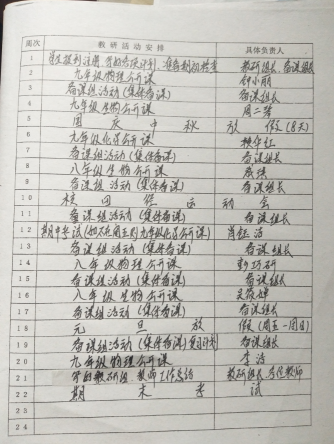 周次 教研活动安排 具体负责人
1 学生报到注册、学校各项计划、准备期初检查 教研组长、备课组长
2 九年级物理公开课 钟小丽
3 备课组活动(集体备课) 备课组长
4 九年级生物公开课 周二芳
5 国庆中秋放假(8天)
6 九年级化学公开课
7 备课组活动(集体备课) 备课组长
8 八年级生物公开课
9 备课组活动(集体备课) 备课组长
10 校田径运动会
11 备课组活动(集体备课) 备课组长
12 期中考试 九年级化学公开课) 肖钰洁
13 备课组活动(集体备课) 备课组长
14 八年级物理公开课 彭巧研
15 备课组活动(集体备课) 备课组长
16 八年级生物公开课
17 备课组活动(集体备课) 备课组长
18 元旦放假(周五—周日)
19 备课组活动(集体备课)复习计划 备课组长
20 九年级物理公开课 李洁
21 学校教研组、教师工作总结 教研组长、各位教师
22 期末考试
23
24